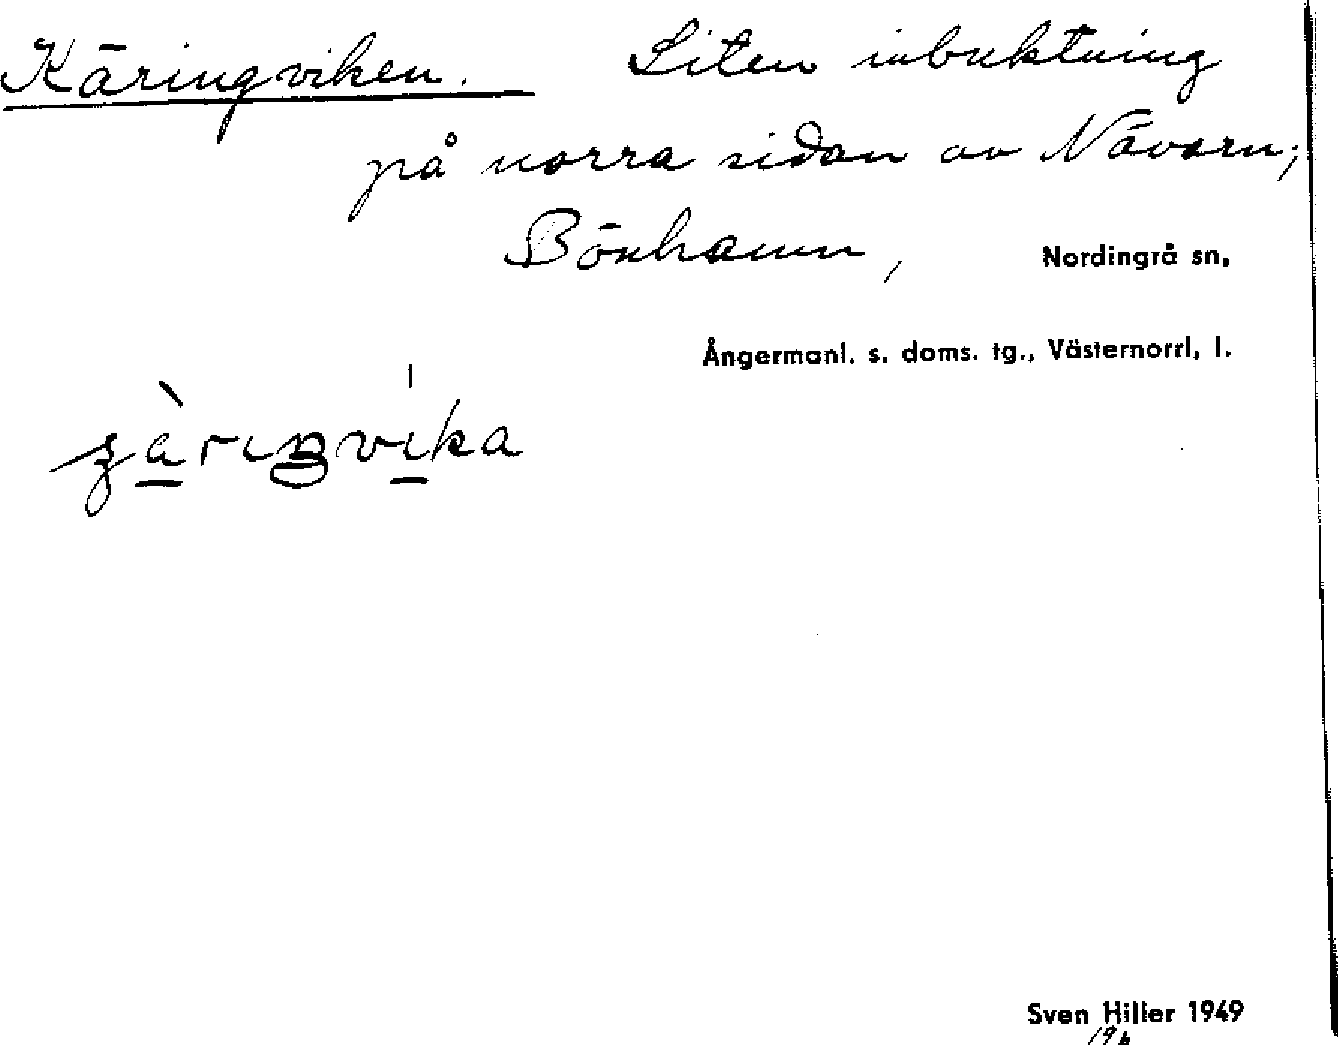 Käringviken. Liten inbuktning
på norra sidan av Nävarn;
Bönhamn, Nordingrå sn,
Ångermanl. s. doms. tg., Västernorrl, l.
Sven Hiller 1949